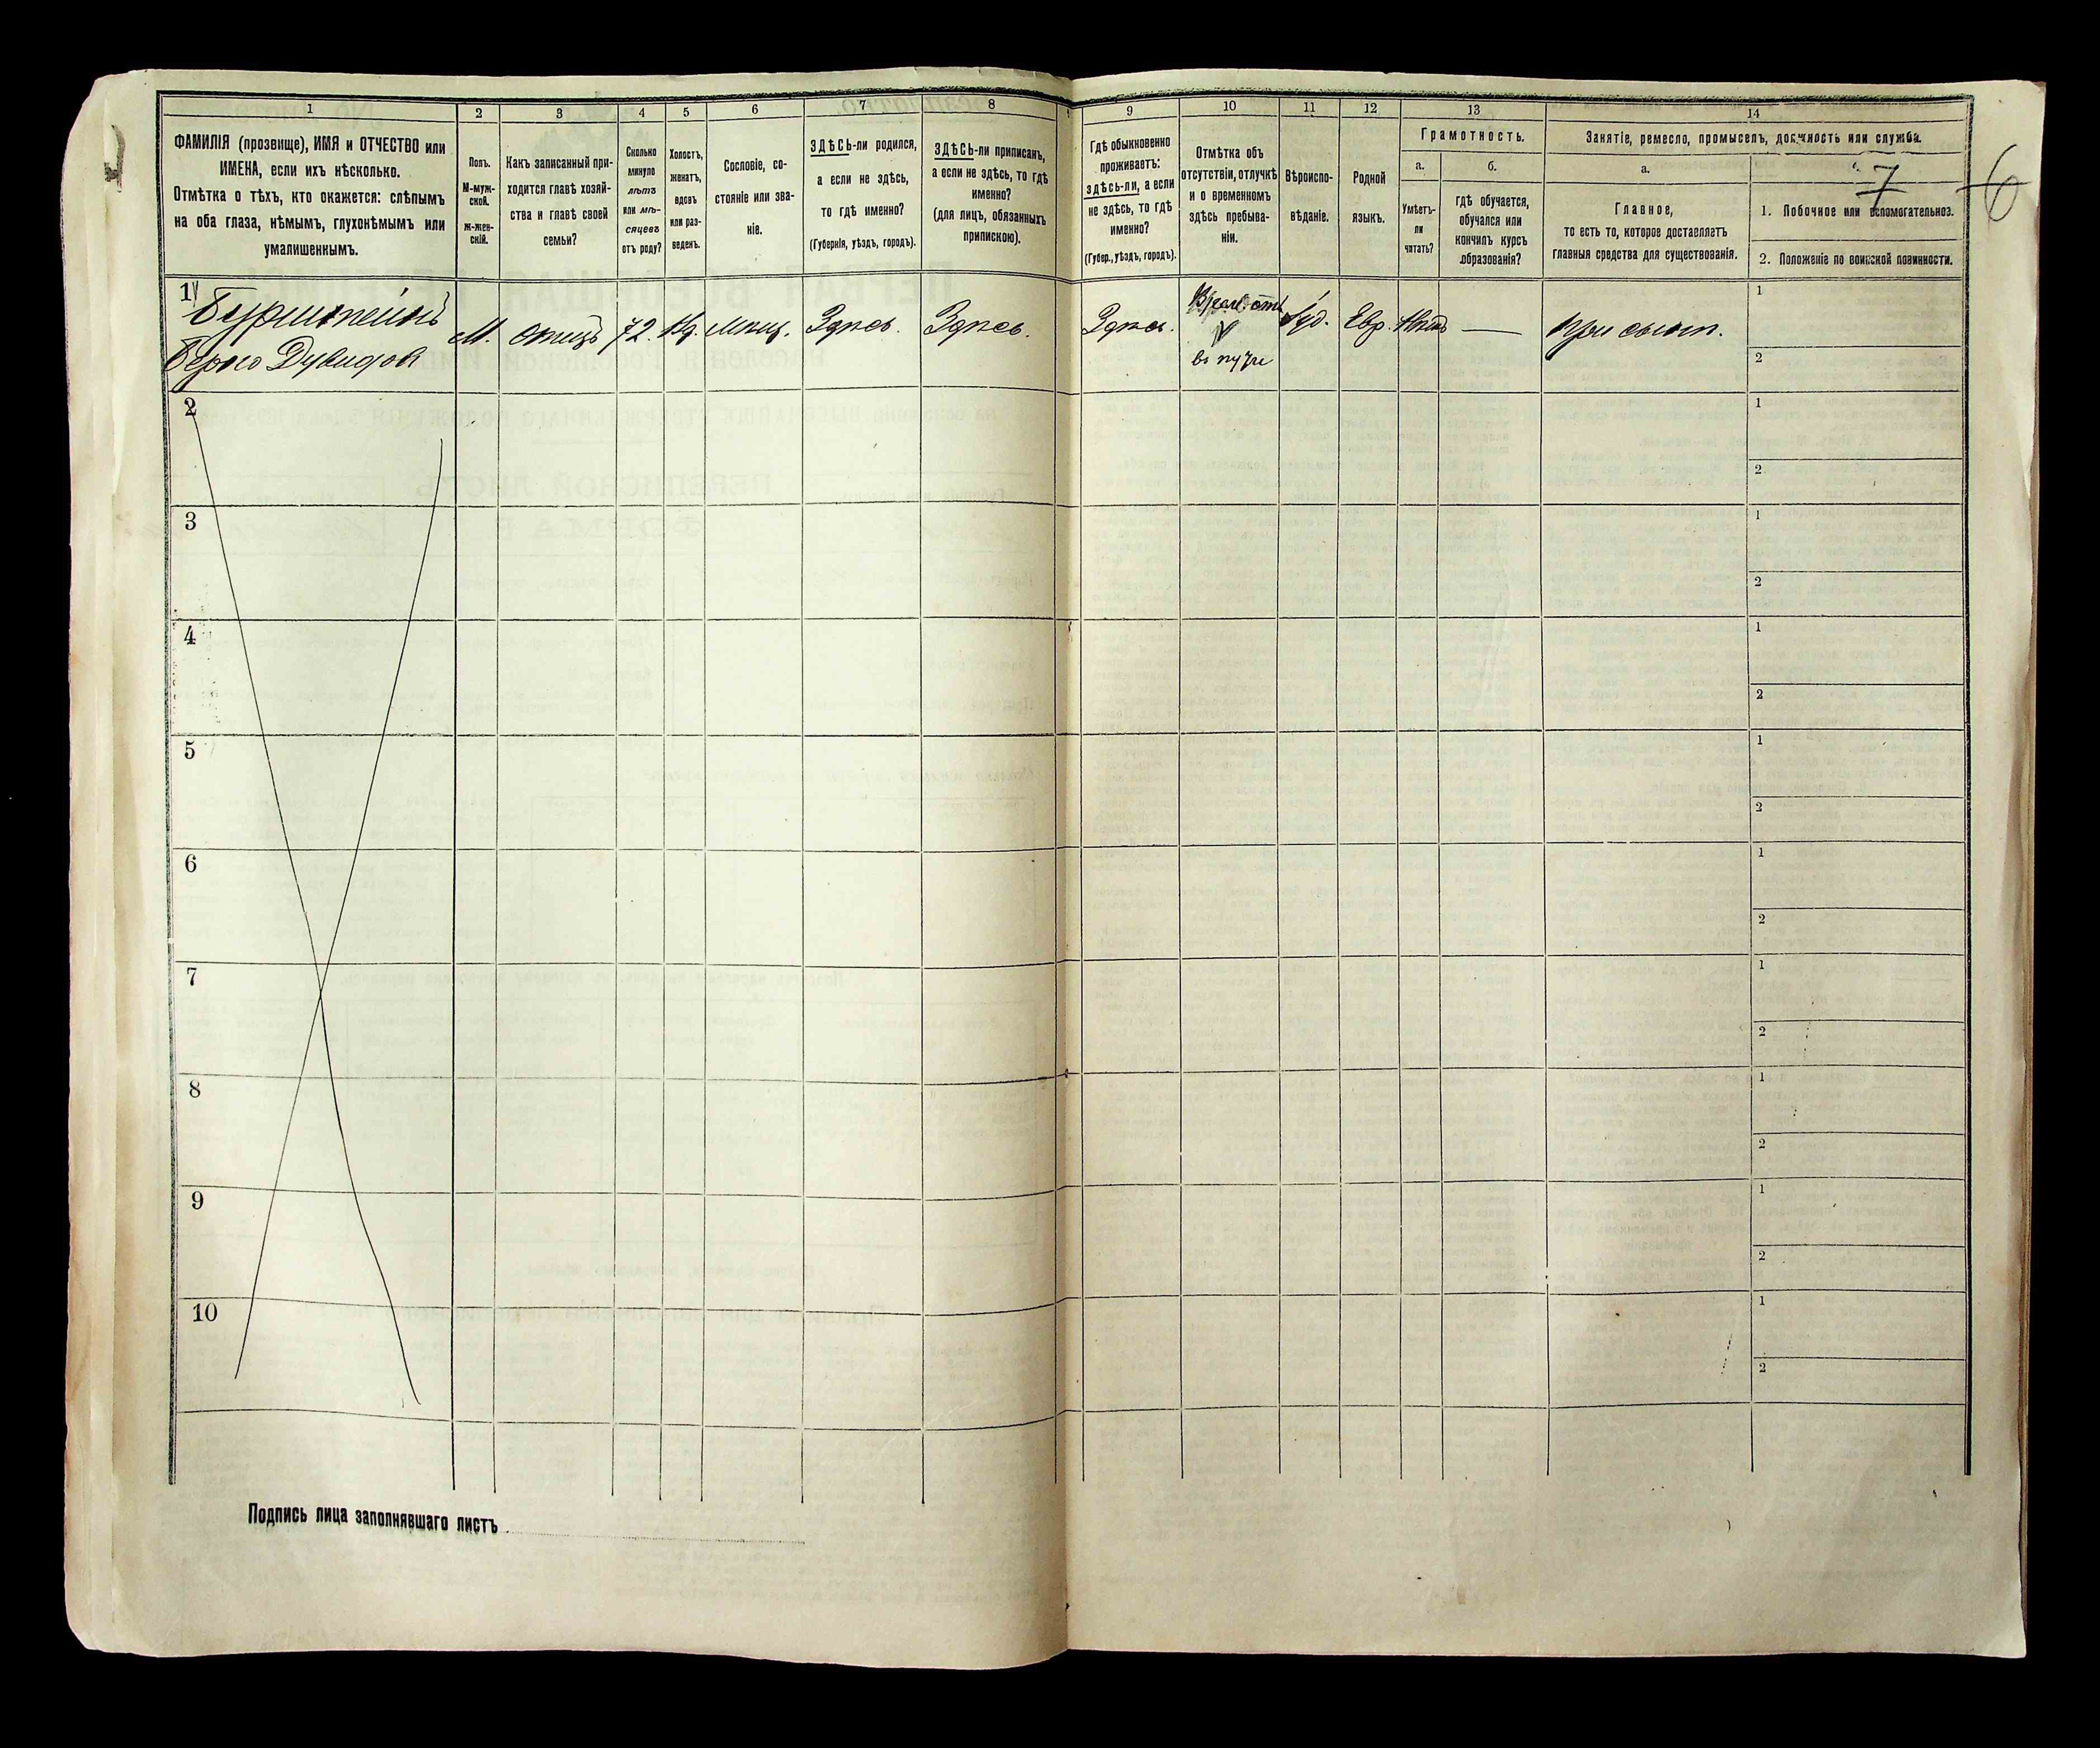 1
2
3
4
5
6
7
8
9
10
11
12
13
14
ФАМИЛІЯ (прозвище), ИМЯ и ОТЧЕСТВО или
ИМЕНА, если ихъ нѣсколько.
Отмѣтка о тѣхъ, кто окажется: слѣпымъ
на оба глаза, нѣмымъ, глухонѣмымъ или
умалишеннымъ.
Полъ.
М-муж-
ской.
Ж-жен-
скій.
Какъ записанный при-
ходится главѣ хозяй-
ства и главѣ своей
семьи?
Сколько
минуло
лѣтъ
или мѣ-
сяцевъ
отъ роду?
Холостъ,
женатъ,
вдовъ
или раз-
веденъ.
Сословіе, со-
стояніе или зва-
ніе.
ЗДѢСЬ-ли родился,
а если не здѣсь,
то гдѣ именно?
(Губернія, уѣздъ, городъ).
ЗДѢСЬ-ли приписанъ,
а если не здѣсь, то гдѣ
именно?
(для лицъ, обязанныхъ
припискою).
Гдѣ обыкновенно
проживаетъ:
здѣсь-ли, а если
не здѣсь, то гдѣ
именно?
(Губер., уѣздъ, городъ).
Отмѣтка объ
отсутствіи, отлучкѣ
и о временномъ
здѣсь пребыва-
ніи.
Вѣроиспо-
вѣданіе.
Родной
языкъ.
Грамотность.
а.
Умѣетъ-
ли
читать?
б.
гдѣ обучается,
обучался или
кончилъ курсъ
образованія?
Занятіе, ремесло, промыселъ, должность или служба.
а.
Главное,
то есть то, которое доставляетъ
главныя средства для существованія.
7
1. Побочное или вспомогательное.
2. Положеніе по воинской повинности.
6
1
Бурштейнъ
Берко Дувидов
М.
отецъ
72.
Вд.
мѣщ.
Здѣсь.
Здѣсь.
Здѣсь.
въ пути
Іуд.
Евр.
—
при сынѣ.
1
2
2
1
2
3
1
2
4
1
2
5
1
2
6
1
2
7
1
2
8
1
2
9
1
2
10
1
2
Подпись лица заполнявшаго листъ